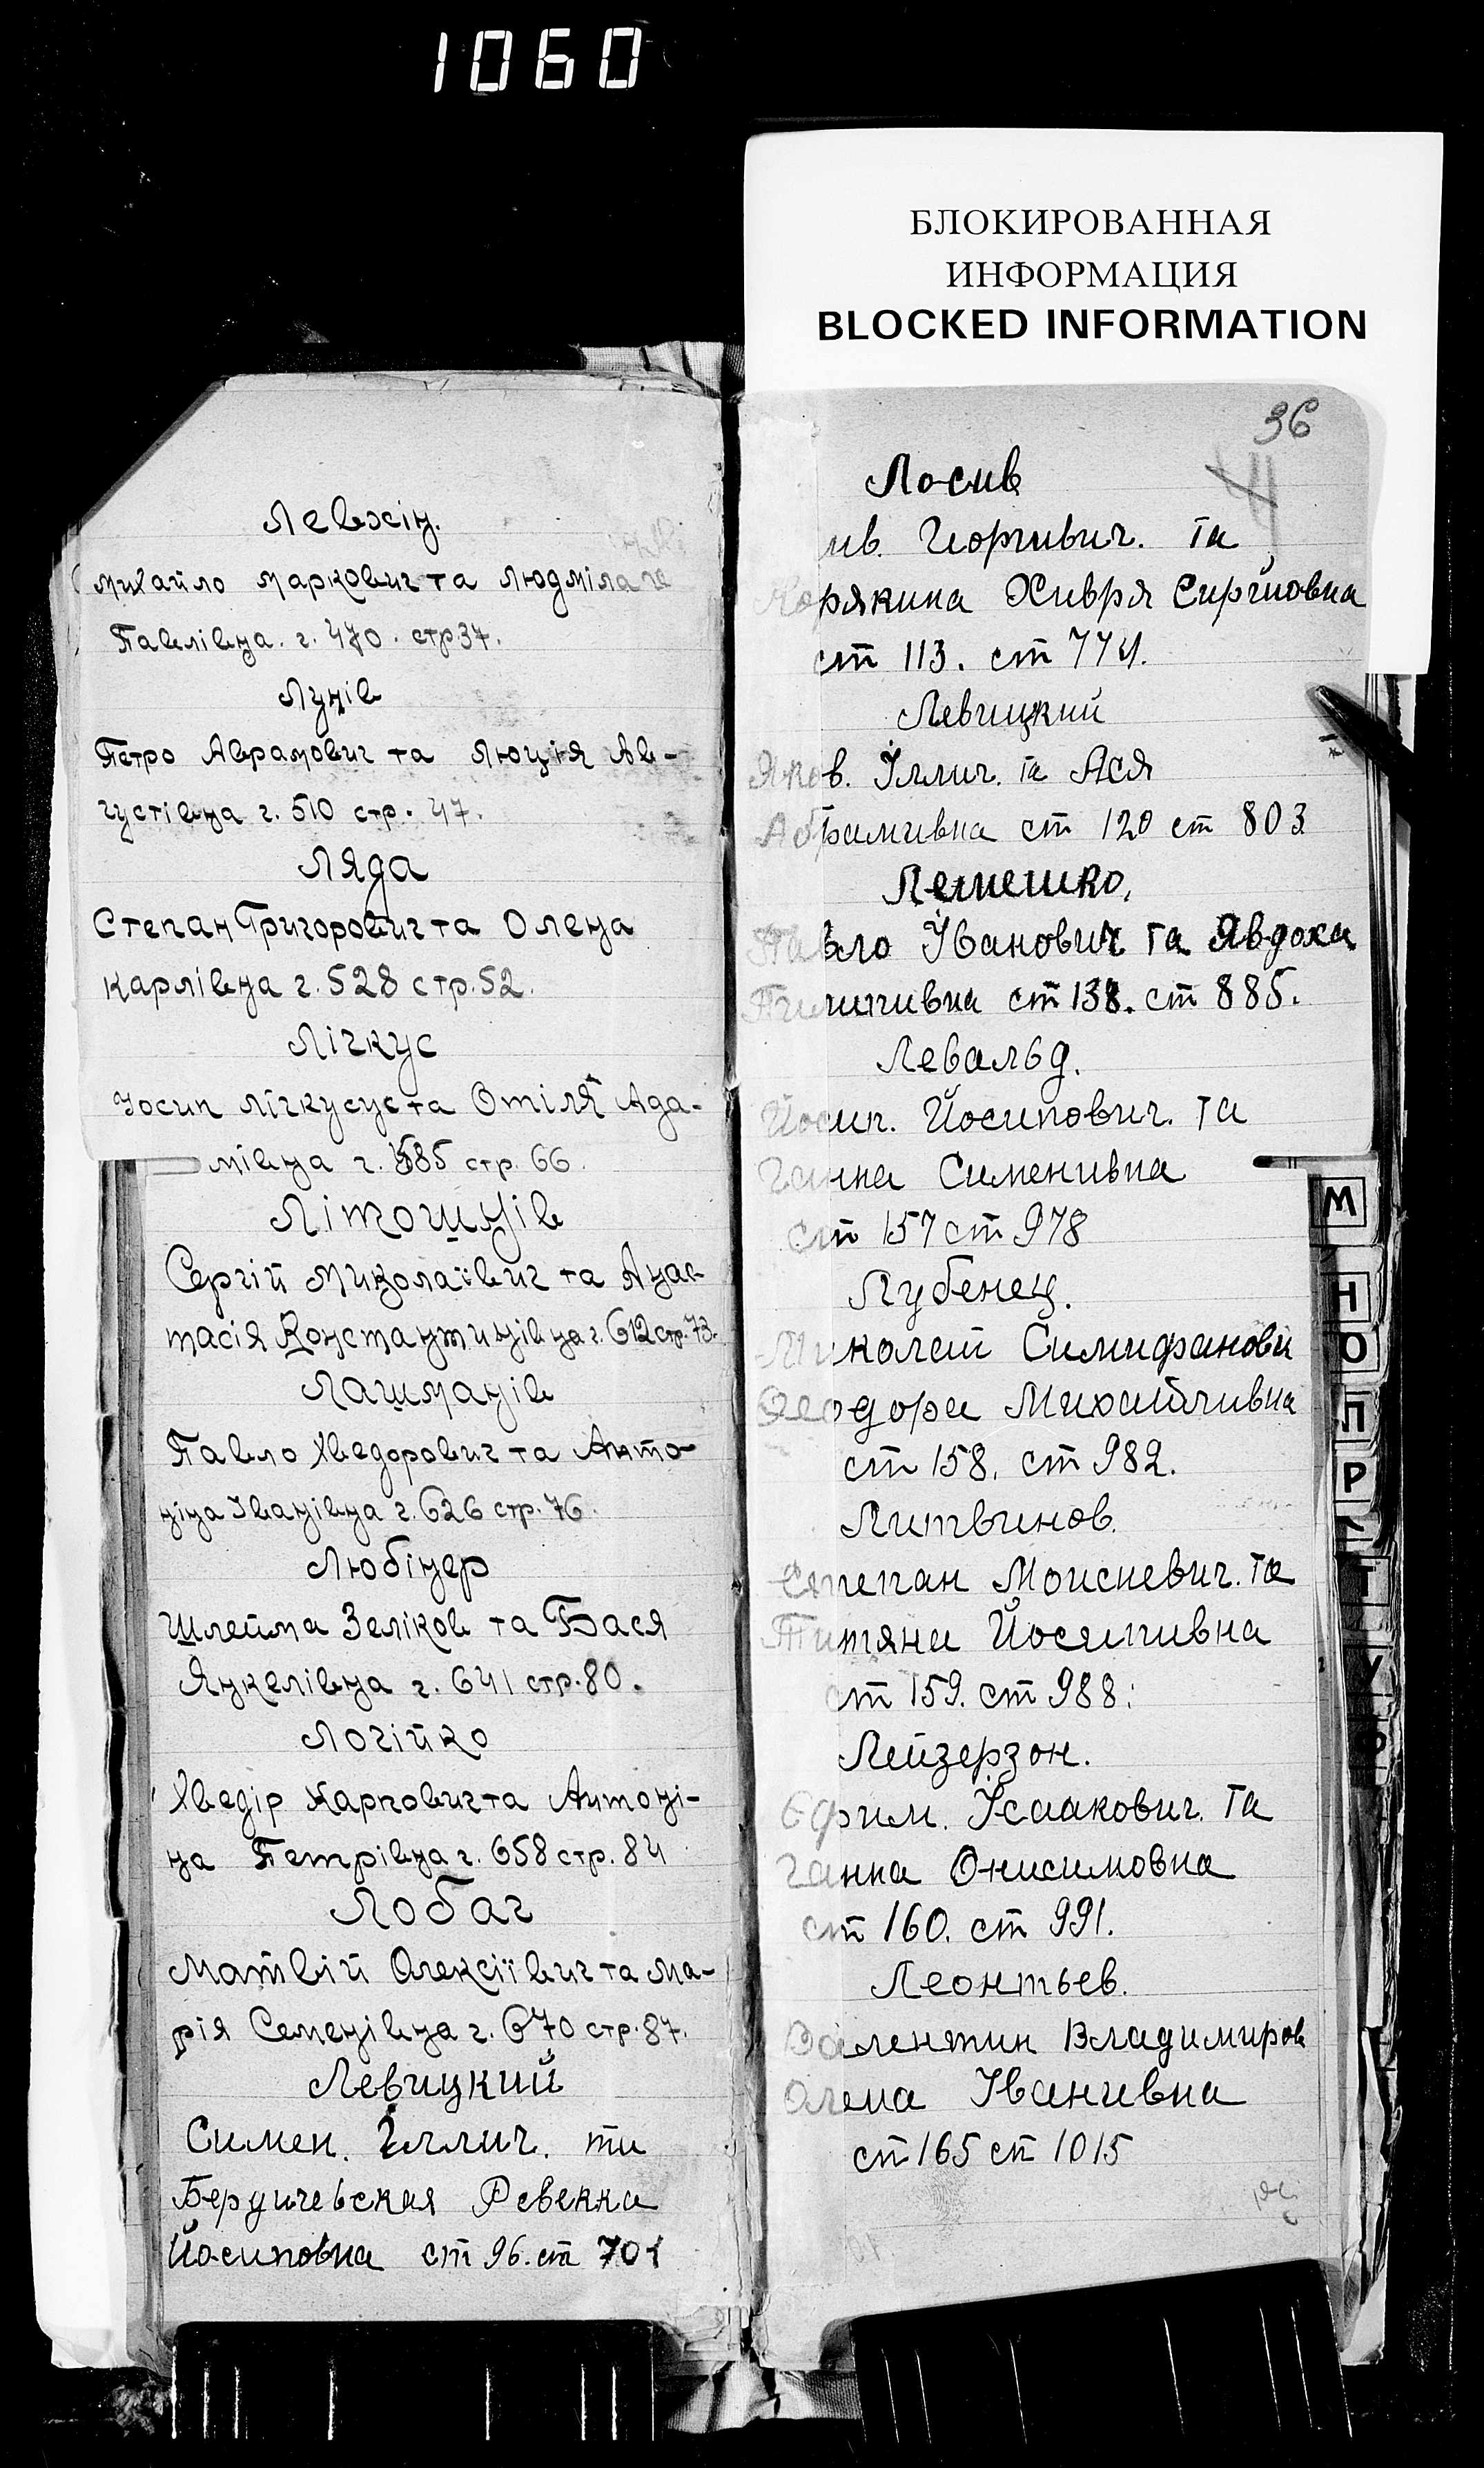 1060
БЛОКИРОВАННАЯ
ИНФОРМАЦИЯ
BLOCKED INFORMATION
Левхін.
Михайло Маркович та Людміла
Павлівна. г. 470. стр 37.
Лунів
Петро Аврамович та Люція Ав-
густівна г. 510 стр. 47.
Ляда
Степан Григорович та Олена
Карлівна г. 528 стр. 52.
Лічкус
Йосип Лічкусус та Отіля Ада-
мівна г. 585 стр. 66.
Літошнів
Сергій Миколаївич та Анас-
тасія Константинівна г. 612 стр. 73.
Лашманів
Павло Хведорович та Анто-
ніна Іванівна г. 626 стр. 76.
Любінер
Шлейма Зеліков та Бася
Янкелівна г. 641 стр. 80.
Логійко
Хведір Карпович та Антоні-
на Петрівна г. 658 стр. 84
Лобач
Матвій Олексіївич та Ма-
рія Семенівна г. 670 стр. 87.
Левицкий
Симен. Іллич. та
Бердичевская Ревекка
Йосиповна ст 96. ст 701
36
Лосив
ив. Гиоргивич. та
Корякина Хивря Сиргиовна
ст 113. ст 774.
Левицкий
Яков. Іллич. та Ася
Абрамивна ст 120 ст 803
Лемешко.
Павло Іванович та Явдоха
Пилипивна ст 138. ст 885.
Левальд.
Йосип. Йосипович. та
Ганна Сименивна
ст 157 ст 978
Лубенец.
Миколай Симифанови
Феодора Михайливна
ст 158. ст 982.
Литвинов.
Степан Моисиевич. та
Титяна Йосипивна
ст 159. ст 988.
Лейзерзон.
Ефрим. Ісаакович. та
Ганна Онисимовна
ст 160. ст 991.
Леонтьев.
Валентин Владимиров
Олена Іванивна
ст 165 ст 1015
М
Н
О
П
Р
Т
У